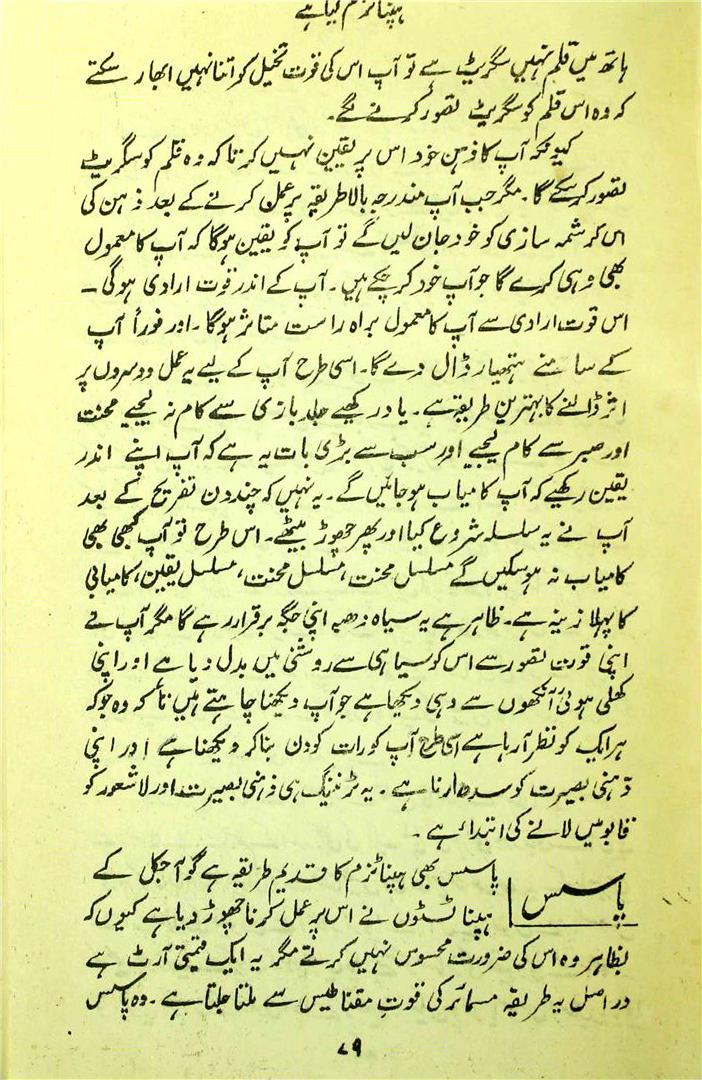 ہپناٹزم کیا ہے
ہاتھ میں قلم نہیں سگریٹ ہے تو آپ اس کی قوت تخیل کو اتنا نہیں ابھار سکتے
کہ وہ اس قلم کو سگریٹ تصور کرنے لگے۔
کیونکہ آپ کا ذہن خود اس پر یقین نہیں کرتا کہ وہ قلم کو سگریٹ
تصور کر سکے گا۔ مگر جب آپ مندرجہ بالا طریقہ پر عمل کرنے کے بعد ذہن کی
اس کرشمہ سازی کو خود جان لیں گے تو آپ کو یقین ہوگا کہ آپ کا معمول
بھی وہی کرے گا جو آپ خود کر چکے ہیں۔ آپ کے اندر قوت ارادی ہوگی۔
اس قوت ارادی سے آپ کا معمول براہ راست متاثر ہوگا۔ اور فوراً آپ
کے سامنے ہتھیار ڈال دے گا۔ اسی طرح آپ کے لیے یہ عمل دوسروں پر
اثر ڈالنے کا بہترین طریقہ ہے۔ یاد رکھیے جلد بازی سے کام نہ لیجیے محنت
اور صبر سے کام لیجیے اور سب سے بڑی بات یہ ہے کہ آپ اپنے اندر
یقین رکھیے کہ آپ کامیاب ہو جائیں گے۔ یہ نہیں کہ چند دن تفریح کے بعد
آپ نے یہ سلسلہ شروع کیا اور پھر چھوڑ بیٹھے۔ اس طرح تو آپ کبھی بھی
کامیاب نہ ہو سکیں گے مسلسل محنت، مسلسل محنت، مسلسل یقین، کامیابی
کا پہلا زینہ ہے۔ ظاہر ہے یہ سیاہ دھبہ اپنی جگہ برقرار رہے گا مگر آپ نے
اپنی قوت تصور سے اس کو سیاہی سے روشنی میں بدل دیا ہے اور اپنی
کھلی ہوئی آنکھوں سے وہی دیکھا ہے جو آپ دیکھنا چاہتے ہیں نا کہ وہ جو کہ
ہر ایک کو نظر آ رہا ہے اسی طرح آپ کو رات کو دن بنا کر دیکھنا ہے اور اپنی
ذہنی بصیرت کو سدھارنا ہے۔ یہ ٹرننیگ ہی ذہنی بصیرت اور لاشعور کو
قابو میں لانے کی ابتداء ہے۔
پاسس
پاسس بھی ہپناٹزم کا قدیم طریقہ ہے گو آجکل کے
ہپناٹسٹوں نے اس پر عمل کرنا چھوڑ دیا ہے کیوں کہ
بظاہر وہ اس کی ضرورت محسوس نہیں کرتے مگر یہ ایک قیمتی آرٹ ہے
دراصل یہ طریقہ مسمائر کی قوتِ مقناطیس سے ملتا جلتا ہے۔ وہ پاسس
۷۹